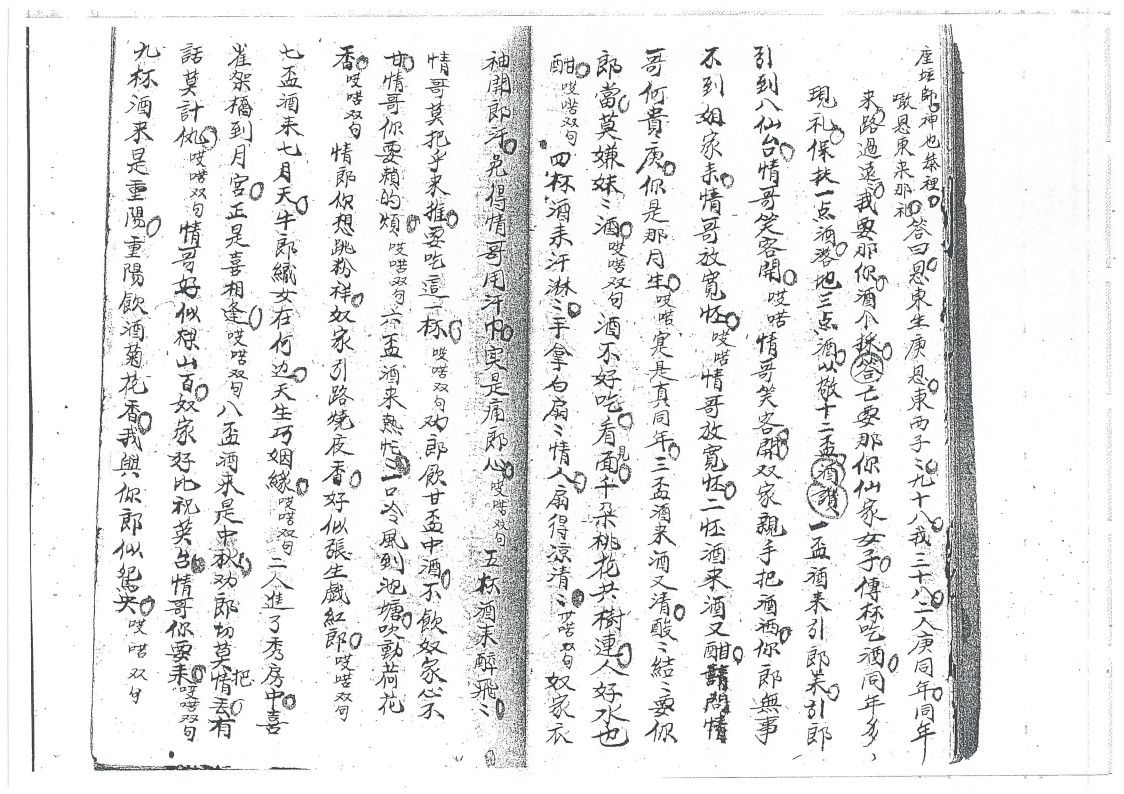 座坛師。神也恭裡。
噉恩東来那礼。答曰恩東生庚恩東西子〻。九十八。我三十八。二人庚同年。同年
来路過遠。我要那你。酒个採。答亡要那你仙家女子。傳杯吃酒。同年多、
現礼。保扶一点酒。潑地三点酒。以敬十二盃酒讃一盃酒来引郎来引郎
引到八仙台。情哥笑客開。哎喏情哥笑客開。双家親手把酒酒。你郎無事
不到姐家来。情哥放寬怌。哎喏情哥放寬怌。二怌酒来酒又酣。請問情
哥何貴庚。你是那月生。哎喏寔是真同年。三盃酒来酒又清。酸〻結〻要你
郎當。莫嫌妹〻酒。哎喏双句酒不好吃。看見面。千朶桃花共樹連。人好水也
酣。哎喏双句四杯酒来汗淋〻。手拿白扇〻情人。扇得凉清〻。哎喏双句奴家衣
袖開郎汗。免得情哥用汗巾。实是痛郎心。哎喏双句五杯酒来醉飛〻。
情哥莫把手来推。要吃這一杯。哎喏双句劝郎飲甘盃中酒。不飲奴家心不
甘。情哥你要賴的煩。哎喏双句六盃酒来熱忙〻。一口冷風到池塘。吹動荷花
香。哎喏双句情郎你想跳粉祥。奴家引路燒夜香。好似張生戲紅郎。哎喏双句
七盃酒来七月天。牛郎織女在何边。天生巧姻緣。哎喏双句二人進了秀房中。喜
雀架橋到月宮。正是喜相逢。哎喏双句八盃酒来是中秋。劝郎切莫把情丢。有
話莫計仇。哎喏双句情哥好似梁山百。奴家好比祝英台。情哥你要来。哎喏双句
九杯酒来是重陽。重陽飲酒菊花香。我與你郎似鴛央。哎喏双句